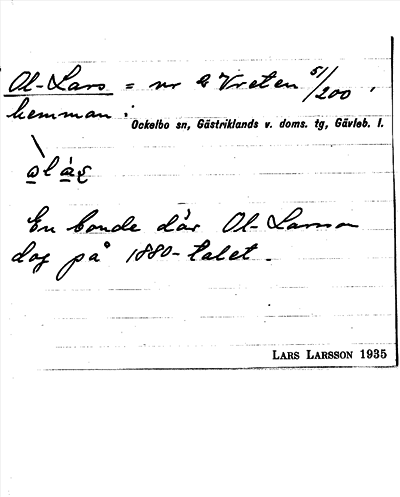 Ol-Lars = nr 2 Vreten 51/200,
hemman i
Ockelbo sn, Gästriklands v. doms. tg, Gävleb. l.
En bonde där Ol-Larson
dog på 1880-talet.
LARS LARSSON 1935